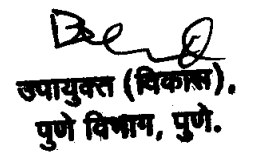 उपायुक्त (विकास),
पुणे विभाग, पुणे.